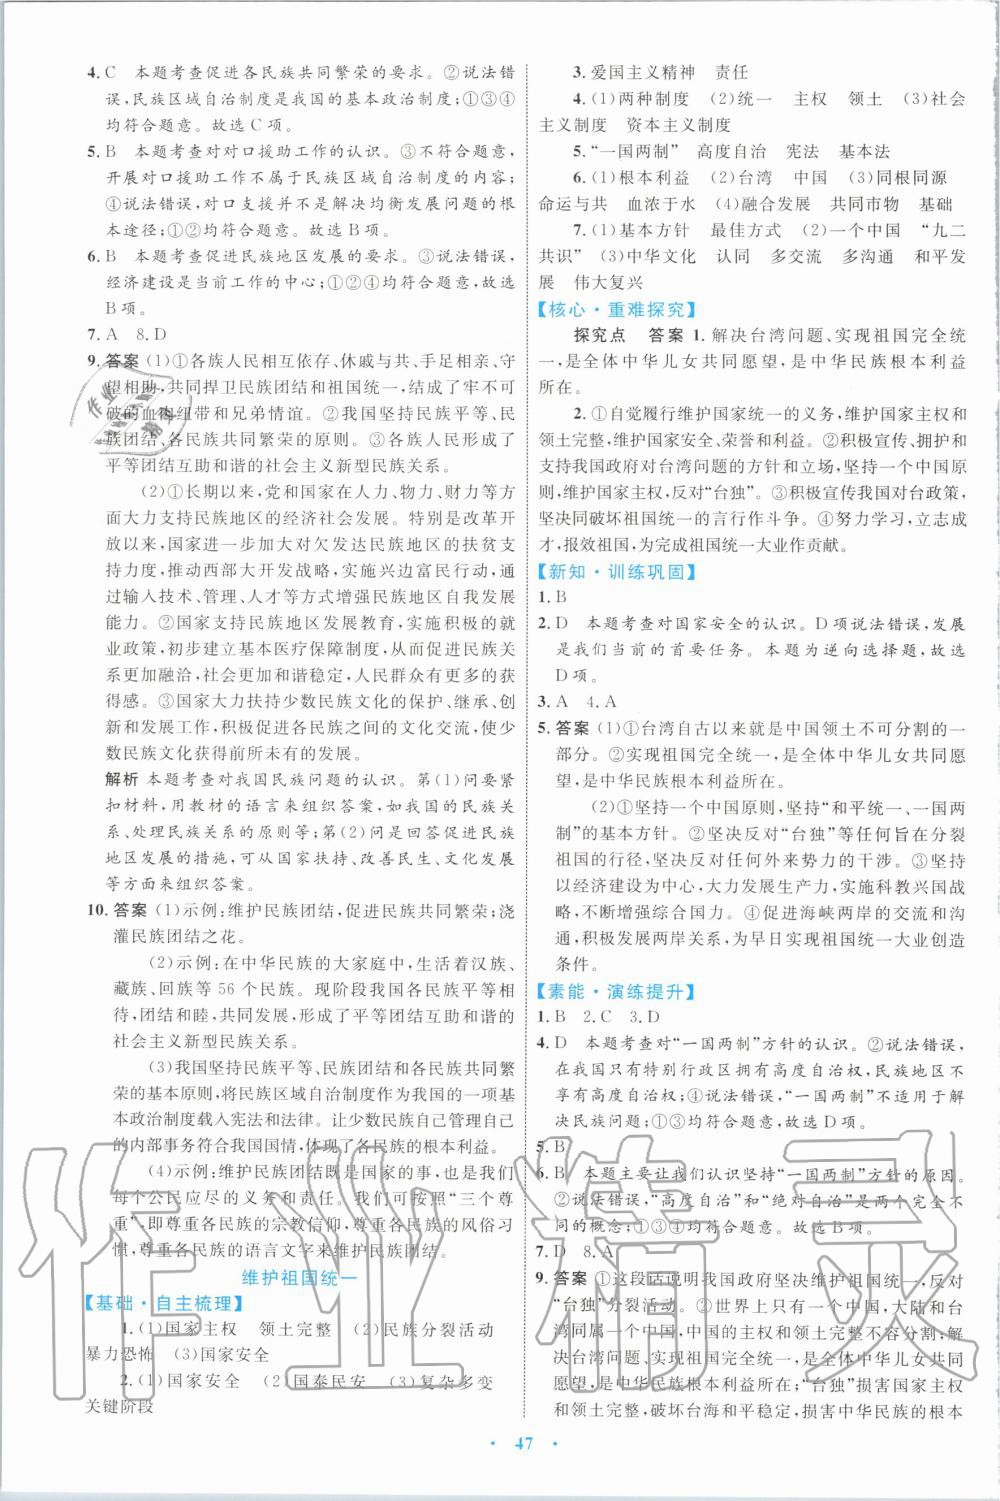 4. C 本题考查促进各民族共同繁荣的要求。②说法错
误,民族区域自治制度是我国的基本政治制度;①③④
均符合题意。故选C项。
5. B 本题考查对对口援助工作的认识。③不符合题意,
开展对口援助工作不属于民族区域自治制度的内容;
④说法错误,对口支援并不是解决均衡发展问题的根
本途径;①②符合题意。故选B项。
6. B 本题考查促进民族地区发展的要求。③说法错误,
经济建设是当前工作的中心;①②④均符合题意。故选
B项。
7. A 8. D
9. 答案 (1)①各族人民相互依存、休戚与共、手足相亲、守
望相助,共同捍卫民族团结和祖国统一,结成了牢不可
破的血肉纽带和兄弟情谊。②我国坚持民族平等、民
族团结、各民族共同繁荣的原则。③各族人民形成了
平等团结互助和谐的社会主义新型民族关系。
(2)①长期以来,党和国家在人力、物力、财力等方
面大力支持民族地区的经济社会发展。特别是改革开
放以来,国家进一步加大对欠发达地区的扶贫支
持力度,推动西部大开发战略,实施兴边富民行动,通
过输入技术、管理、人才等方式增强民族地区自我发展
能力。②国家支持民族地区发展教育,实施积极的就
业政策,初步建立基本医疗保障制度,从而促进民族地
区更加和谐,社会更加团结安定,人民群众有更多的获
得感。③国家大力扶持少数民族文化的保护、继承、创
新和发展工作,积极促进各民族之间的文化交流,使少
数民族文化获得前所未有的发展。
解析 本题考查对我国民族问题的认识。第(1)问要紧
扣材料,用教材的语言来组织答案,如我国的民族关
系、处理民族关系的原则等;第(2)问是回答促进民族
地区发展的措施,可以从国家扶持、改善民生、文化发展
等方面来组织答案。
10. 答案 (1)示例:维护民族团结,促进民族共同繁荣;浇
灌民族团结之花。
(2)示例:在中华民族的大家庭中,生活着汉族、
藏族、回族等56个民族。现阶段我国各民族平等相
待,团结和睦,共同发展,形成了平等团结互助和谐的
社会主义新型民族关系。
(3)我国坚持民族平等、民族团结和各民族共同繁
荣的基本原则,将民族区域自治制度作为我国的一项基
本政治制度载入宪法和法律。让少数民族自己管理自己
的内部事务符合我国国情,体现了各民族的根本利益。
(4)示例:维护民族团结既是国家的事,也是我们
每个公民应尽的义务和责任。我们可按照“三个尊
重”,即尊重各民族的宗教信仰,尊重各民族的风俗习
惯,尊重各民族的语言文字来维护民族团结。
维护祖国统一
【基础·自主梳理】
1.(1)国家主权 领土完整 (2)民族分裂活动
暴力恐怖 (3)国家安全
2.(1)国家安全 (2)国泰民安 (3)复杂多变
关键阶段
3. 爱国主义精神 责任
4.(1)两种制度 (2)统一 主权 领土 (3)社会
主义制度 资本主义制度
5.“一国两制” 高度自治 宪法 基本法
6.(1)根本利益 (2)台湾 中国 (3)同根同源
命运与共 血浓于水 (4)融合发展 共同市物 基础
7.(1)基本方针 最佳方式 (2)一个中国 “九二
共识” (3)中华文化 认同 多交流 多沟通 和平发
展 伟大复兴
【核心·重难探究】
探究点 答案 1. 解决台湾问题、实现祖国完全统
一,是全体中华儿女共同愿望,是中华民族根本利益
所在。
2. ①自觉履行维护国家统一的义务,维护国家主权和
领土完整,维护国家安全、荣誉和利益。②积极宣传、拥护和
支持我国政府对台湾问题的方针和立场,坚持一个中国原
则,维护国家主权,反对“台独”。③积极宣传我国对台政策,
坚决同破坏祖国统一的言行作斗争。④努力学习,立志成
才,报效祖国,为完成祖国统一大业作贡献。
【新知·训练巩固】
1. B
2. D 本题考查对国家安全的认识。D项说法错误,发展
是我们当前的首要任务。本题为逆向选择题,故选
D项。
3. A 4. A
5. 答案 (1)①台湾自古以来就是中国领土不可分割的一
部分。②实现祖国完全统一,是全体中华儿女共同愿
望,是中华民族根本利益所在。
(2)①坚持一个中国原则,坚持“和平统一、一国两
制”的基本方针。②坚决反对“台独”等任何旨在分裂
祖国的行径,坚决反对任何外来势力的干涉。③坚持
以经济建设为中心,大力发展生产力,实施科教兴国战
略,不断增强综合国力。④促进海峡两岸的交流和沟
通,积极发展两岸关系,为早日实现祖国统一大业创造
条件。
【素能·演练提升】
1. B 2. C 3. D
4. D 本题考查对“一国两制”方针的认识。②说法错误,
在我国只有特别行政区拥有高度自治权,民族地区不
享有高度自治权;④说法错误,“一国两制”不适用于解
决民族问题;①③均符合题意,故选D项。
5. B
6. B 本题主要让我们认识坚持“一国两制”方针的原因。
②说法错误,“高度自治”和“绝对自治”是两个完全不
同的概念;①③④均符合题意。故选B项。
7. D 8. A
9. 答案 ①这段话说明我国政府坚决维护祖国统一,反对
“台独”分裂活动。②世界上只有一个中国,大陆和台
湾同属一个中国,中国的主权和领土完整不容分割;解
决台湾问题、实现祖国完全统一,是全体中华儿女共同
愿望,是中华民族根本利益所在。“台独”损害国家主权
和领土完整,破坏台海和平稳定,损害中华民族的根本
47
作业精灵